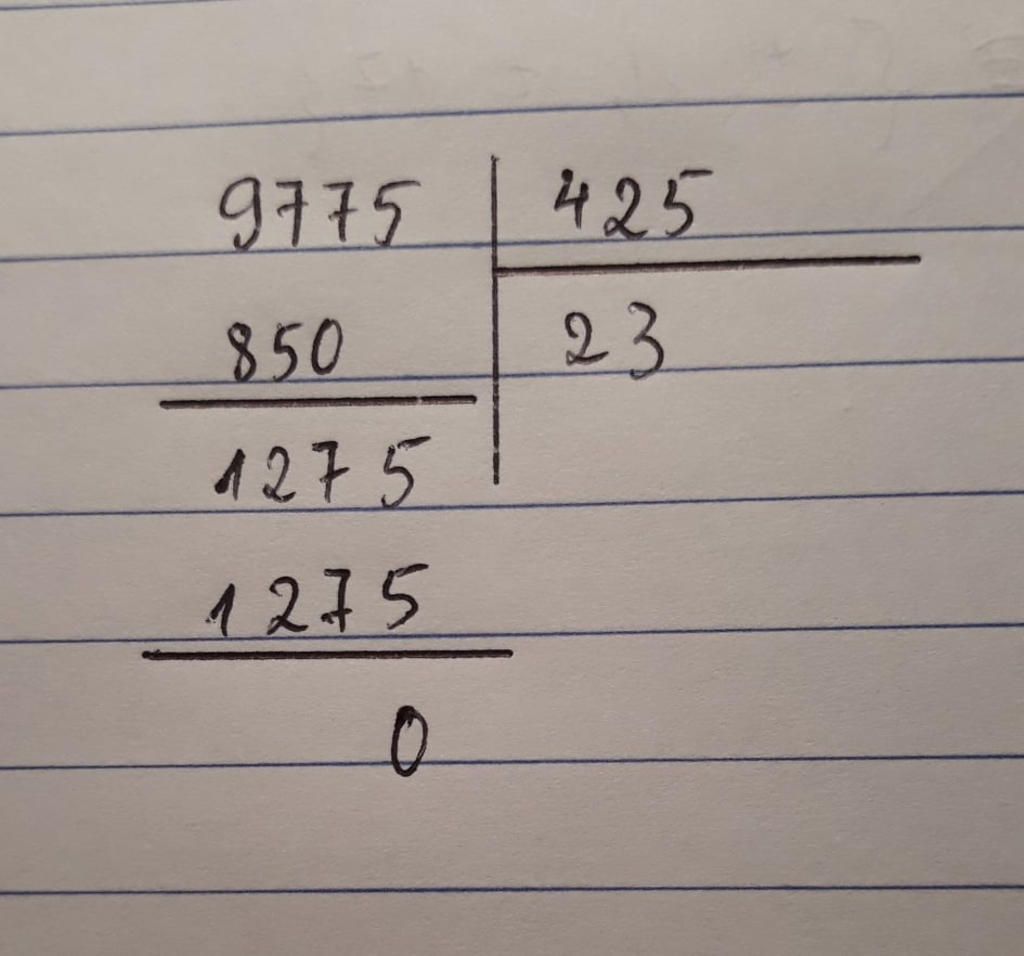 9775 425
850 23
1275
1275
0